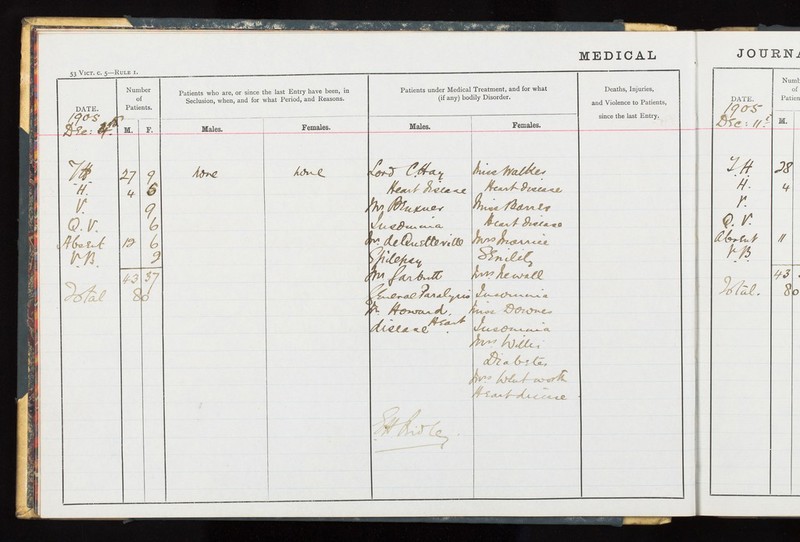 MEDICAL
53 VICT. C. 5—RULE 1.
DATE.
Number of Patients.
M. F.
Patients who are, or since the last Entry have been, in Seclusion, when, and for what Period, and Reasons.
Males.
Females.
Patients under Medical Treatment, and for what (if any) bodily Disorder.
Males.
Females.
Deaths, Injuries,
and Violence to Patients,
since the last Entry.
1905
Dec: 4th
T H 27 9
H. 4 5
V. 9
Q. V. 6
Absent 12 6
V. B. 2
43 37
Total 80
None
None
Lord C. Hay
Heart disease
Insomnia
Epilepsy
Mr Garbutt
General Paralysis
Mr Howard.
Heart
disease
Miss Walker
Heart disease
Miss Barnes
Heart disease
Mrs
Senility
Mrs Newall
Insomnia
Miss Downes
Insomnia
Mrs Willis
Diabetes
Mrs
Heart disease
Ridley
JOURNA
DATE.
Numb
of
Patien
M.
1905
Dec: 11th
T. H. 28
H. 4
V.
Q. V.
Absent 11
V B
43
Total. 80